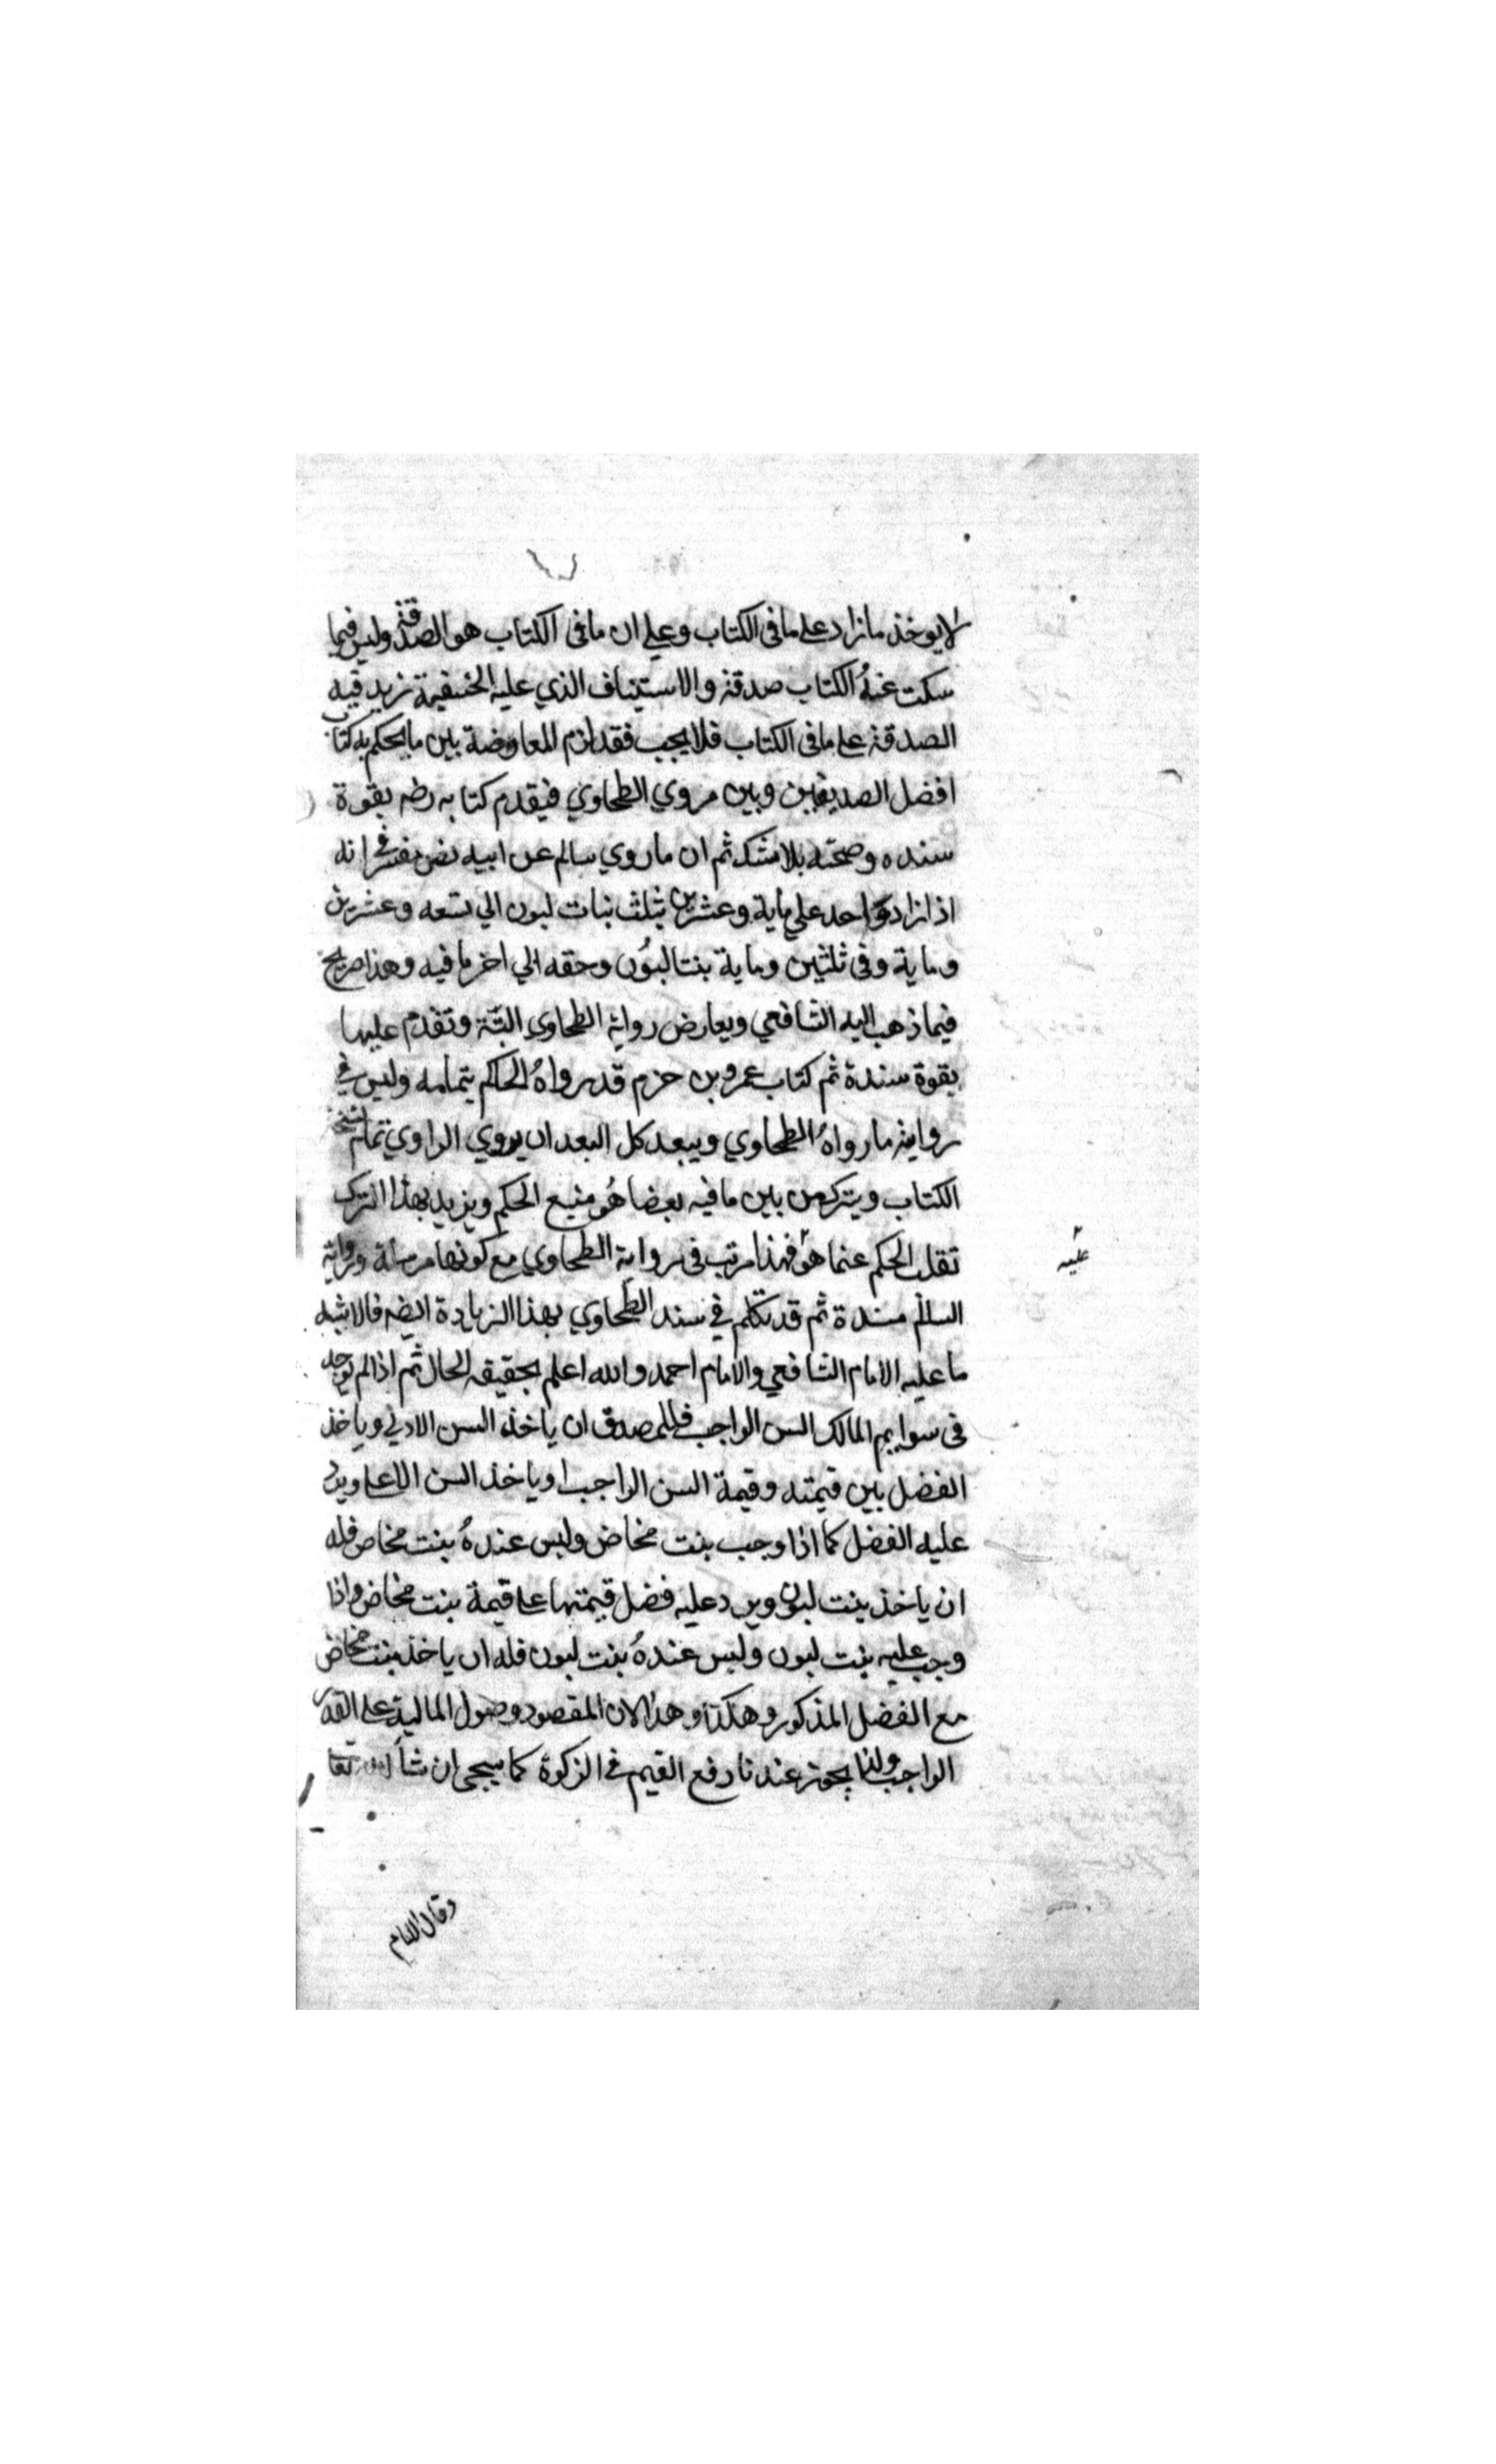 لا يوخذ ما زاد على ما فى الكتاب وعلى ان ما فى الكتاب هو الصدقة وليس فيما
سكت عنهُ الكتاب صدقة والاستيناف الذي عليه الحنفية تزيد فيه
الصدقة على ما فى الكتاب فلا يجب فقد لزم المعاوضة بين ما يحكم به كتاب
افضل الصديقين وبين مروي الطحاوي فيقدم كتابه رضه بقوة
سنده وصحته بلا شك ثم ان ما روي سالم عن ابيه نص مفسر في انه
اذا زاد واحد على ماية وعشرين ثلث بنات لبون الي تسعه وعشرين
وماية وفى ثلثين وماية بنتا لبُون وحقه الي اخر ما فيه وهذا صريح
فيما ذهب اليه الشافعي ويعارض رواية الطحاوي البتة وتقدم عليها
بقوة سندة ثم كتاب عمرو بن حزم قد رواهُ الحاكم بتمامه وليس في
رواية ما رواهُ الطحاوي ويبعد كل البعد ان يروي الراوي تمام نسخة
الكتاب ويترك من بين ما فيه بعضا هُو منبع الحكم ويزيد بهذا الترك
تقلب الحكم عنما هو فهذا مرتب فى رواية الطحاوي مع كونها مرسلة ورواية
عليه
السالم مسندة ثم قد تكلم في سند الطحاوي بهذا الزيادة ايضه فالاشبه
ما عليه الامام الشافعي والامام احمد والله اعلم بحقيقه الحال ثم اذا لم توجد
فى سوايم المالك السن الواجب فللمصدق ان ياخذ السن الادني وياخذ
الفضل بين قيمته وقيمة السن الواجب او ياخذ السن الاعلى ويرد
عليه الفضل كما اذا وجب بنت مخاض وليس عندهُ بنت مخاض فله
ان ياخذ بنت لبون ويرد عليه فضل قيمتها على قيمة بنت مخاض واذا
وجب عليه بنت لبون وليس عندهُ بنت لبون فله ان ياخذ بنت مخاض
مع الفضل المذكور وهكذا وهذا لان المقصود وصول المالية على القدر
الواجب ولذا يجوز عندنا دفع القيم في الزكوة كما سيجى ان شا الله تعا
وقال الامام